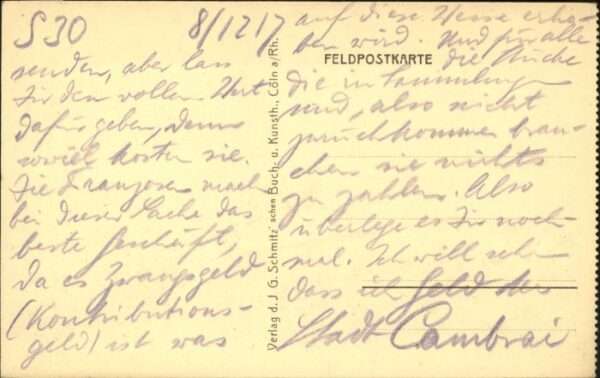 S 30
8/12 17
senden, aber lass
Dir den vollen Wert
dafür geben, denn
soviel kosten sie.
Die Franzosen mach
bei dieser Sache das
beste Geschäft,
da es Zwangsgeld
(Kontributions-
geld) ist was
Verlag d. J. G. Schmitz'schen Buch- u. Kunsth., Cöln a/Rh.
auf diese Weise erho-
ben wird. Und für alle
FELDPOSTKARTE
die Stücke
die in Sammlungen
sind, also nicht
zurückkommen brau-
chen sie nichts
zu zahlen. Also
überlege es Dir noch-
mal. Ich will sehn
dass ich Geld der
Stadt Cambrai